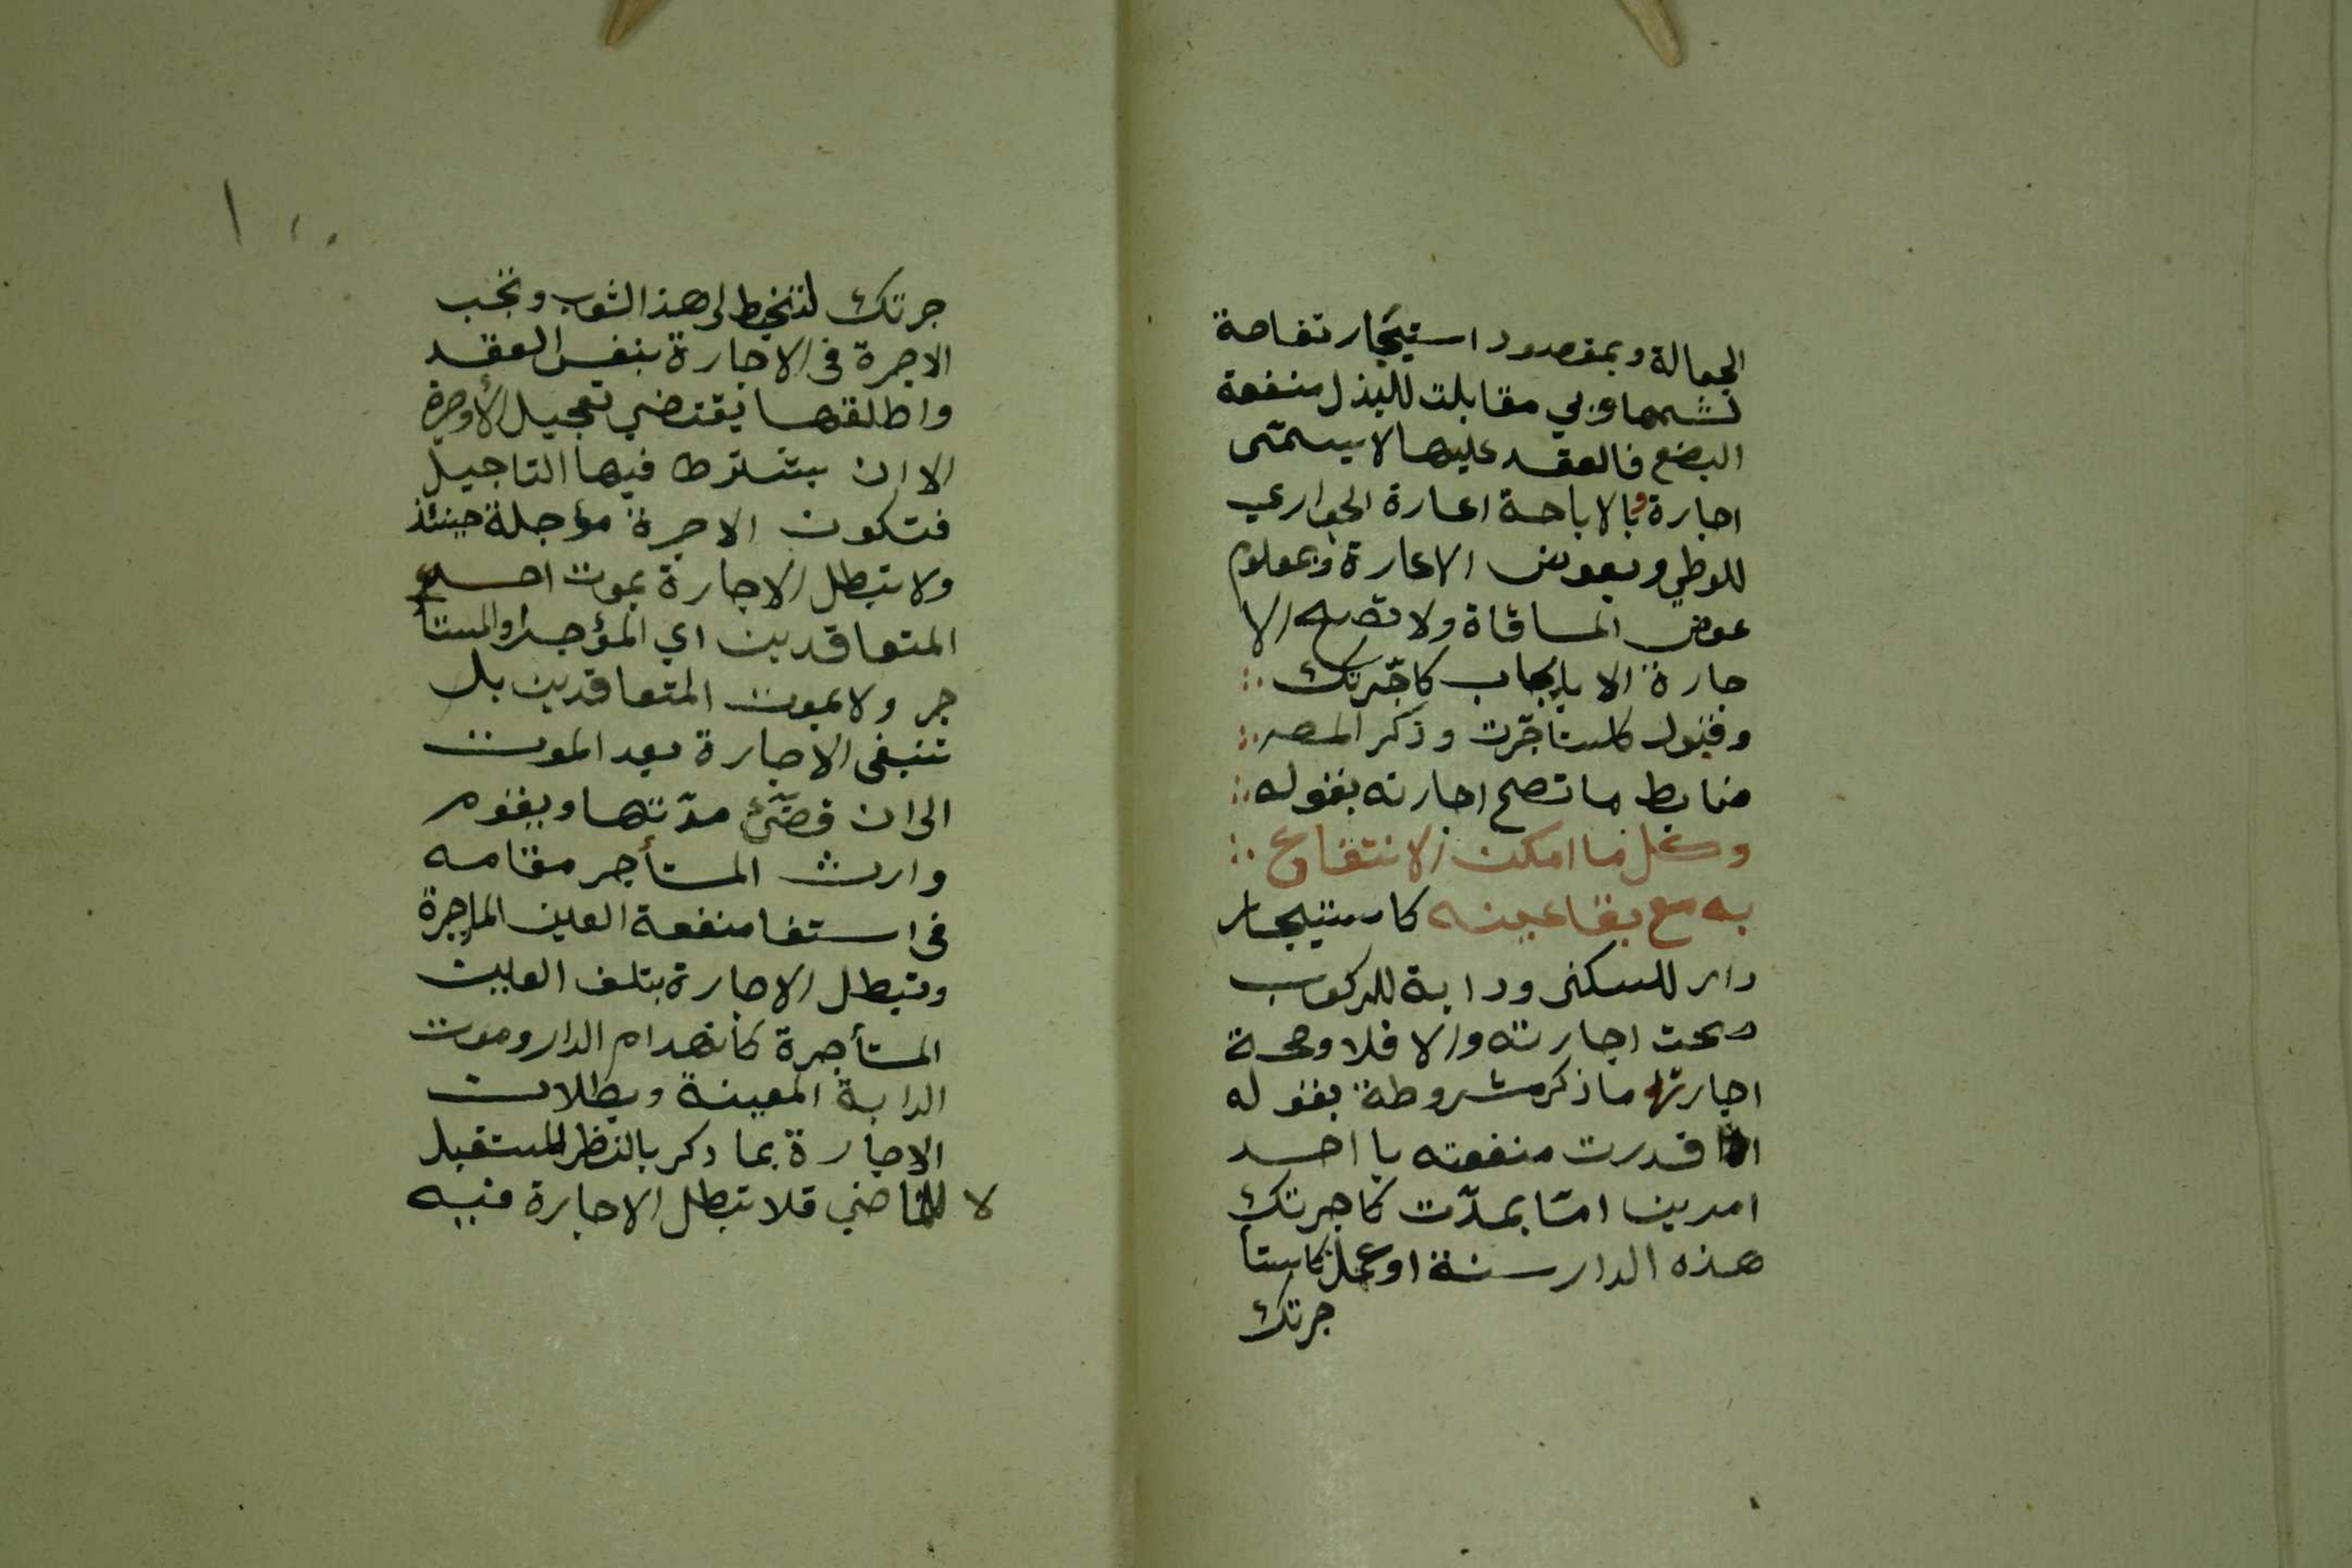 الجعالة وبمقصود استيجار تفاحة
لشمها وبي مقابلت للبذل منفعة
البضع فالعقد عليها لا يسمّى
اجارة وبالاباحة اعارة الجواري
للوطي وبعوض الاعارة وبمعلوم
عوض المساقاة ولا تصح الا
جارة الا بايجاب كاجّرتك
وقبول كاستأجّرت وذكر المصـ
ضابط ما تصح اجارته بقوله
وكل ما امكن الانتفاع
به مع بقا عينه كاستيجار
دار للسكنى ودابة للركوب
صحت اجارته والا فلا وصحة
اجارتها ما ذكر مشروطة بقوله
اذا قدرت منفعته با احد
امرين امّا بمدّت كاجرتك
هذه الدار سنة او عمل كاستا
جرتك
١٠٠
جرتك لتخيط لى هذا الثوب وتجب
الاجرة فى الاجارة بنفس العقد
واطلقها يقتضي تعجيل الأوجرة
الا ان يشترط فيها التاجيل
فتكون الاجرة مؤجلة حينئذ
ولا تبطل الاجارة بموت احد
المتعاقدين اي المؤجر والمستأ
جر ولا بموت المتعاقدين بل
تنبقى الاجارة بعد الموت
الى ان قضّئ مدّتها ويقوم
وارث المستأجر مقامه
فى استفا منفعة العين الماجرة
وتبطل الاجارة بتلف العين
المستأجرة كانهدام الدار وموت
الدابة المعينة وبطلان
الاجارة بما ذكر بالنظر للمستقبل
لا للماضي قلا تبطل الاجارة فيه